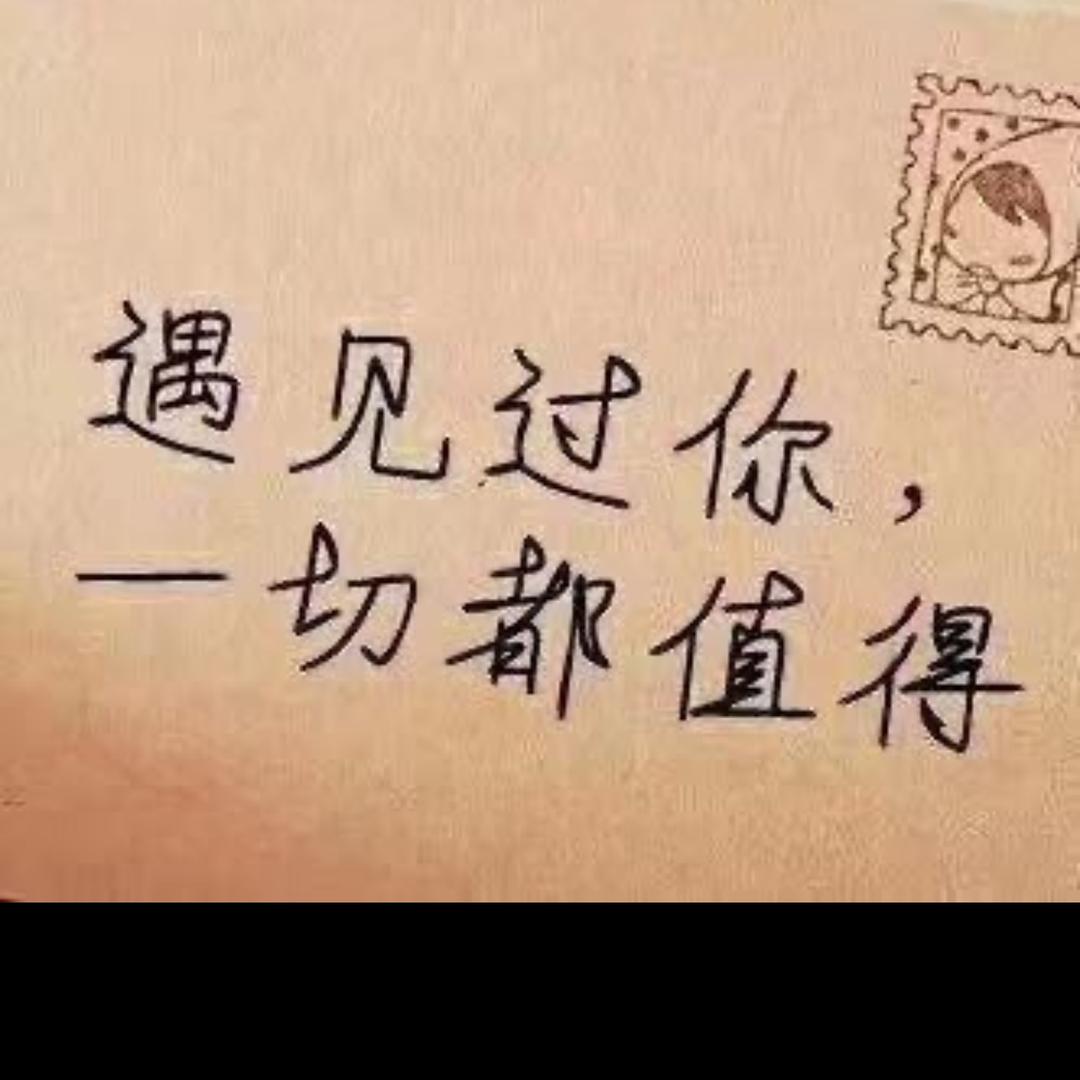 遇见过你，
一切都值得